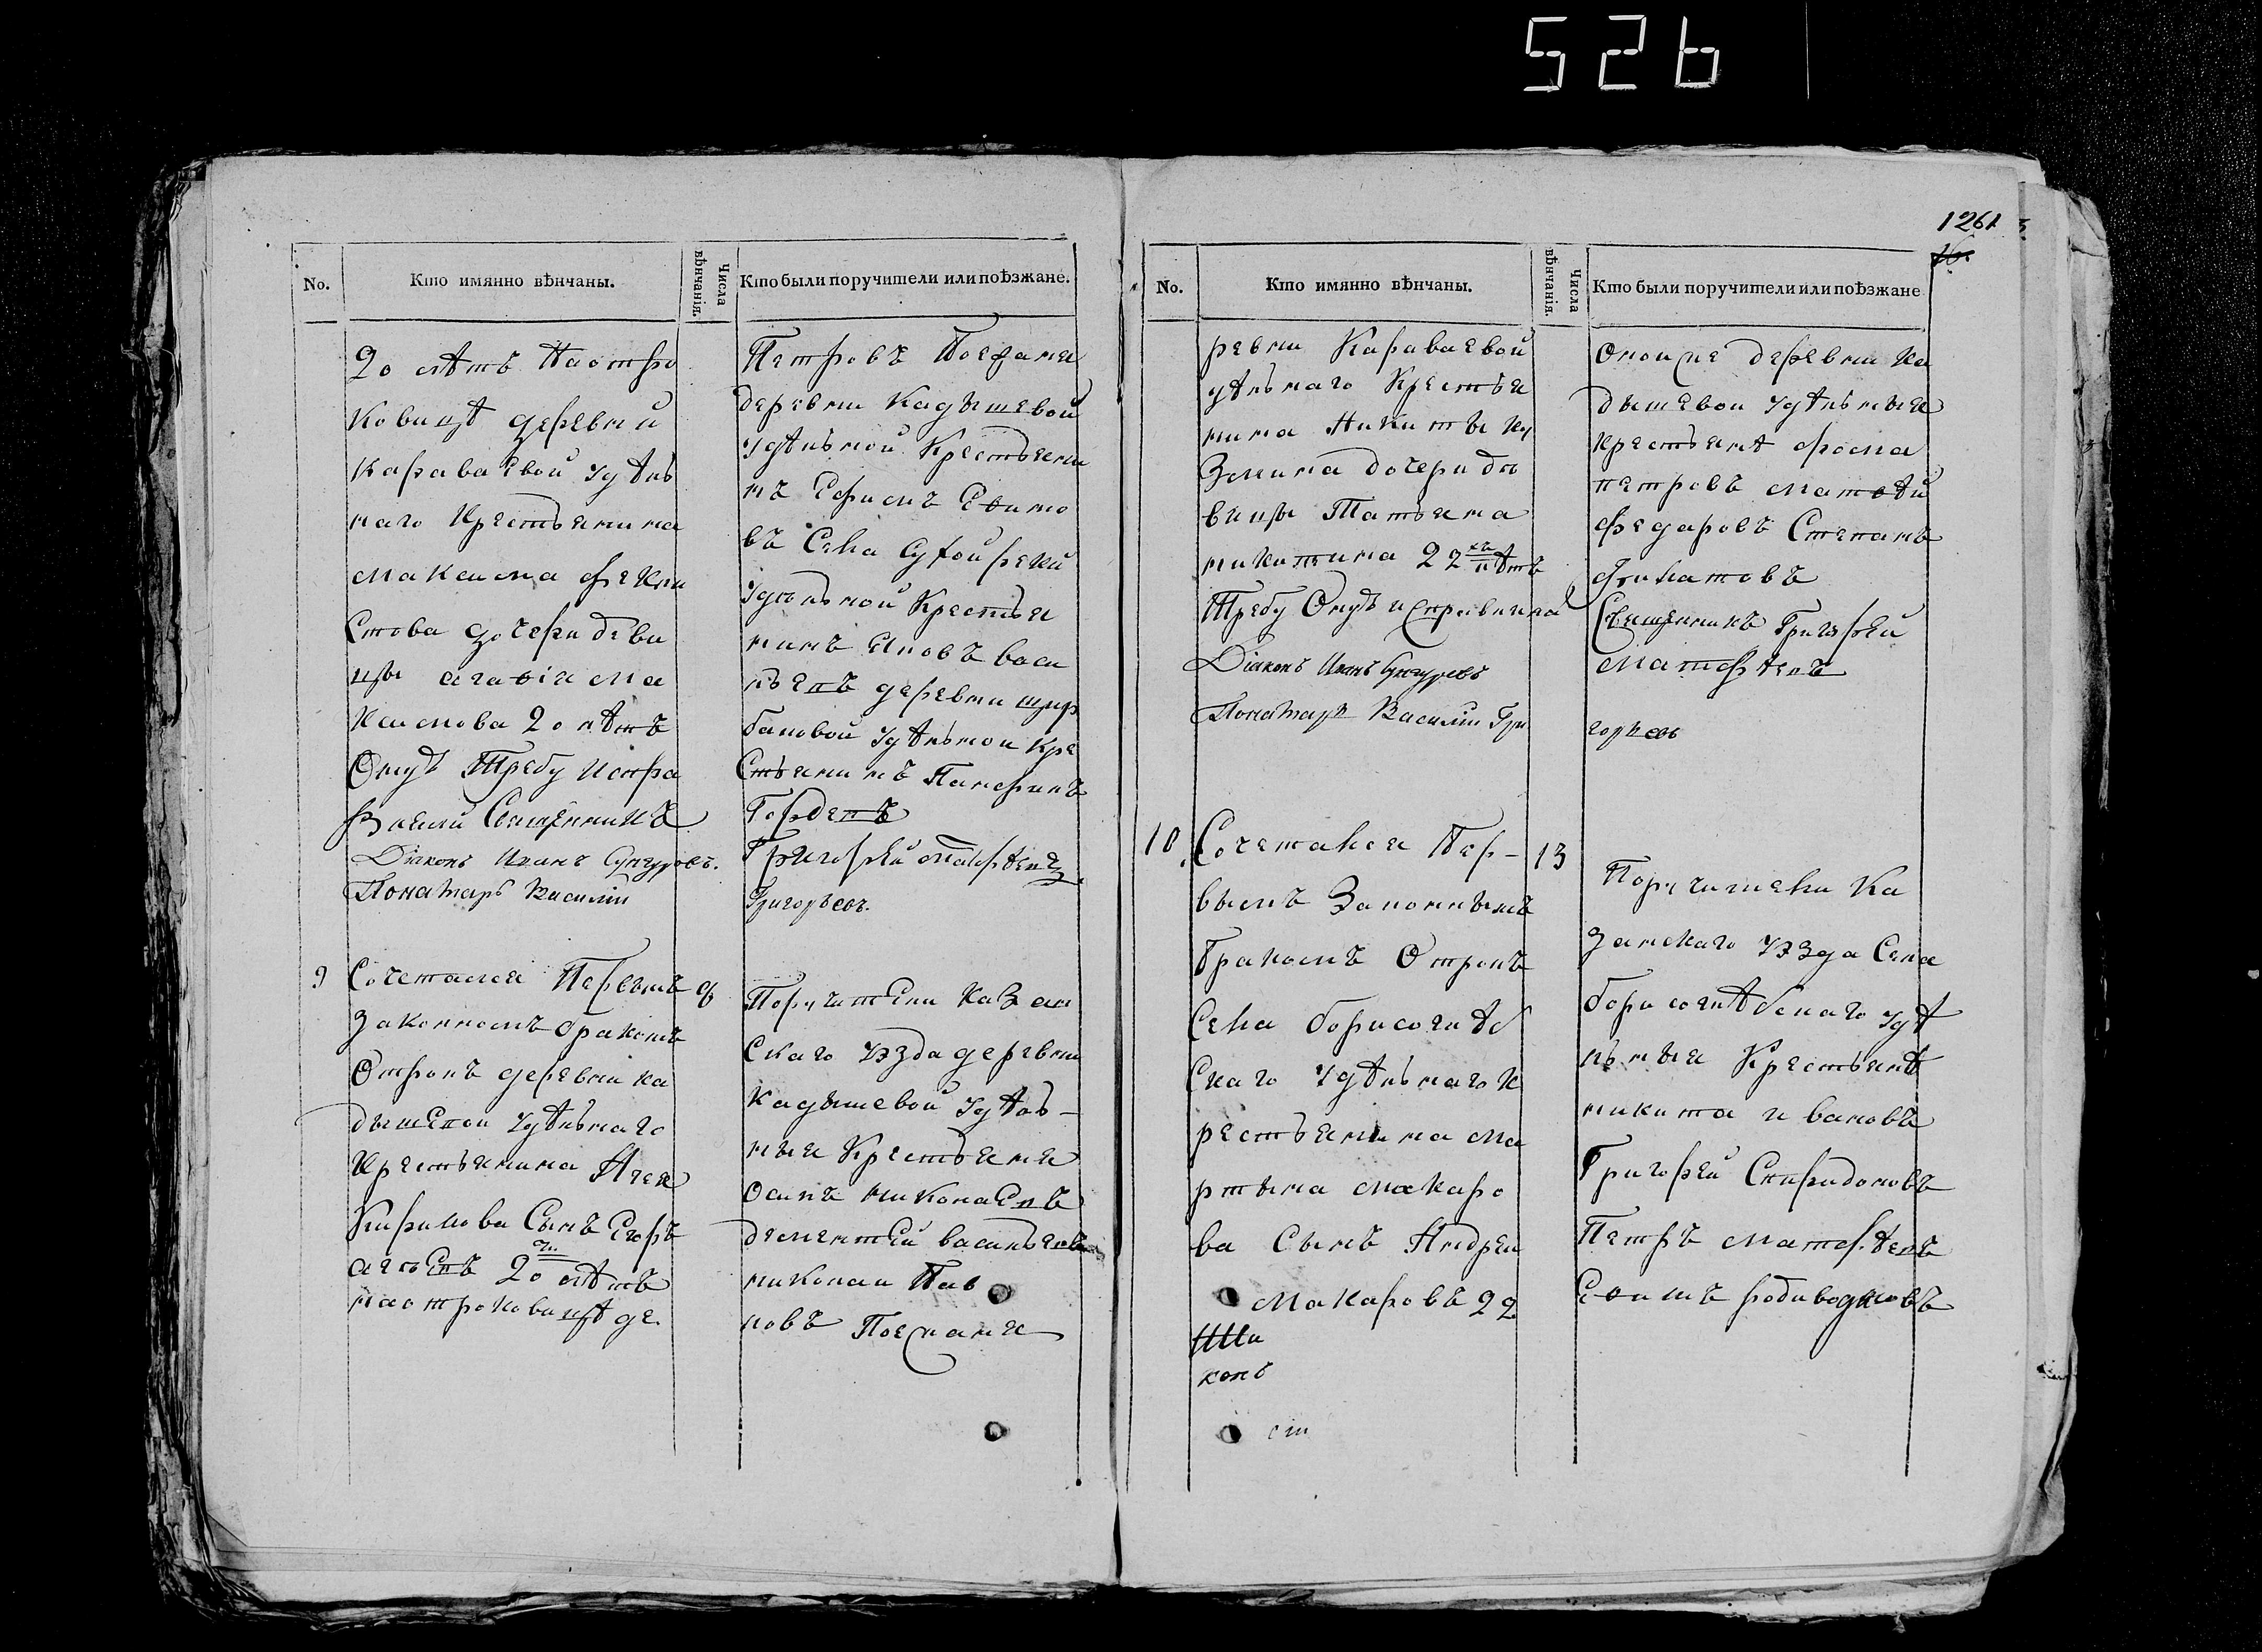 526
1261
No.
Кто имянно вѣнчаны.
Числа вѣнчанія.
Кто были поручители или поѣзжане.
20 лѣтъ На отро
ковицѣ деревни
Караваевой удѣль
наго Крестьянина
максима фекти
Стова дочери деви
цы агаѳiи ма
ксимова 20 лѣтъ
Ону Требу испра
влели Священникъ
Діаконъ Иванъ
Понамарь Василий
Петровъ Поезжаня
деревни Кадышевой
удѣльной Крестьяни
нъ Ефимъ Ефимо
въ Села Сухой реки
Удѣльной Крестья
нинъ Яковъ васи
льевъ деревни
бановой удѣльной Кре
Стьянинъ Панфилъ
Гордевъ
Григорей Матфѣевъ
Григорьевъ.
9
Сочетался Первымъ
законномъ бракомъ
Отрокъ деревни ка
дышевой удѣльнаго
Крестьянина Агея
Кирилова Сынъ Егоръ
агеевъ 20 лѣтъ
на отроковицѣ де.
Поручители Казан
Скаго уѣзда деревни
Кадышевой удѣль-
ныя Крестьяня
осипъ николаевъ
дементей васильевъ
николаи Пав
ловъ Поезжаня
No.
Кто имянно вѣнчаны.
Числа вѣнчанія.
Кто были поручители или поѣзжане
ревни Караваевой
удѣльнаго Крестья
нина Никиты Ку
Змина дочери дѣ
вицы Татьяна
никитина 22 лѣтъ
Требу Ону исправляли
Діаконъ Иванъ
Понамарь Василий Гри
ония деревни Ка
дышевои удѣльныя
крестьянѣ фома
петровъ матвѣй
федаровъ Степанъ
филатовъ
Священникъ Григорей
Матфѣевъ
горьевъ
10
Сочетался Пер-
вымъ Законнымъ
бракомъ Отрокъ
Села борисоглѣб
Скаго удѣльнаго К
рестьянина ма
ртына макаро
ва Сынъ Андреи
Макаровъ 22
13
Поручители Ка
занскаго уѣзда Села
борисоглѣбскаго удѣ
льныя Крестьянѣ
никита ивановъ
Григорей Спиридоновъ
Петръ матфѣевъ
Ефимъ родивоновъ